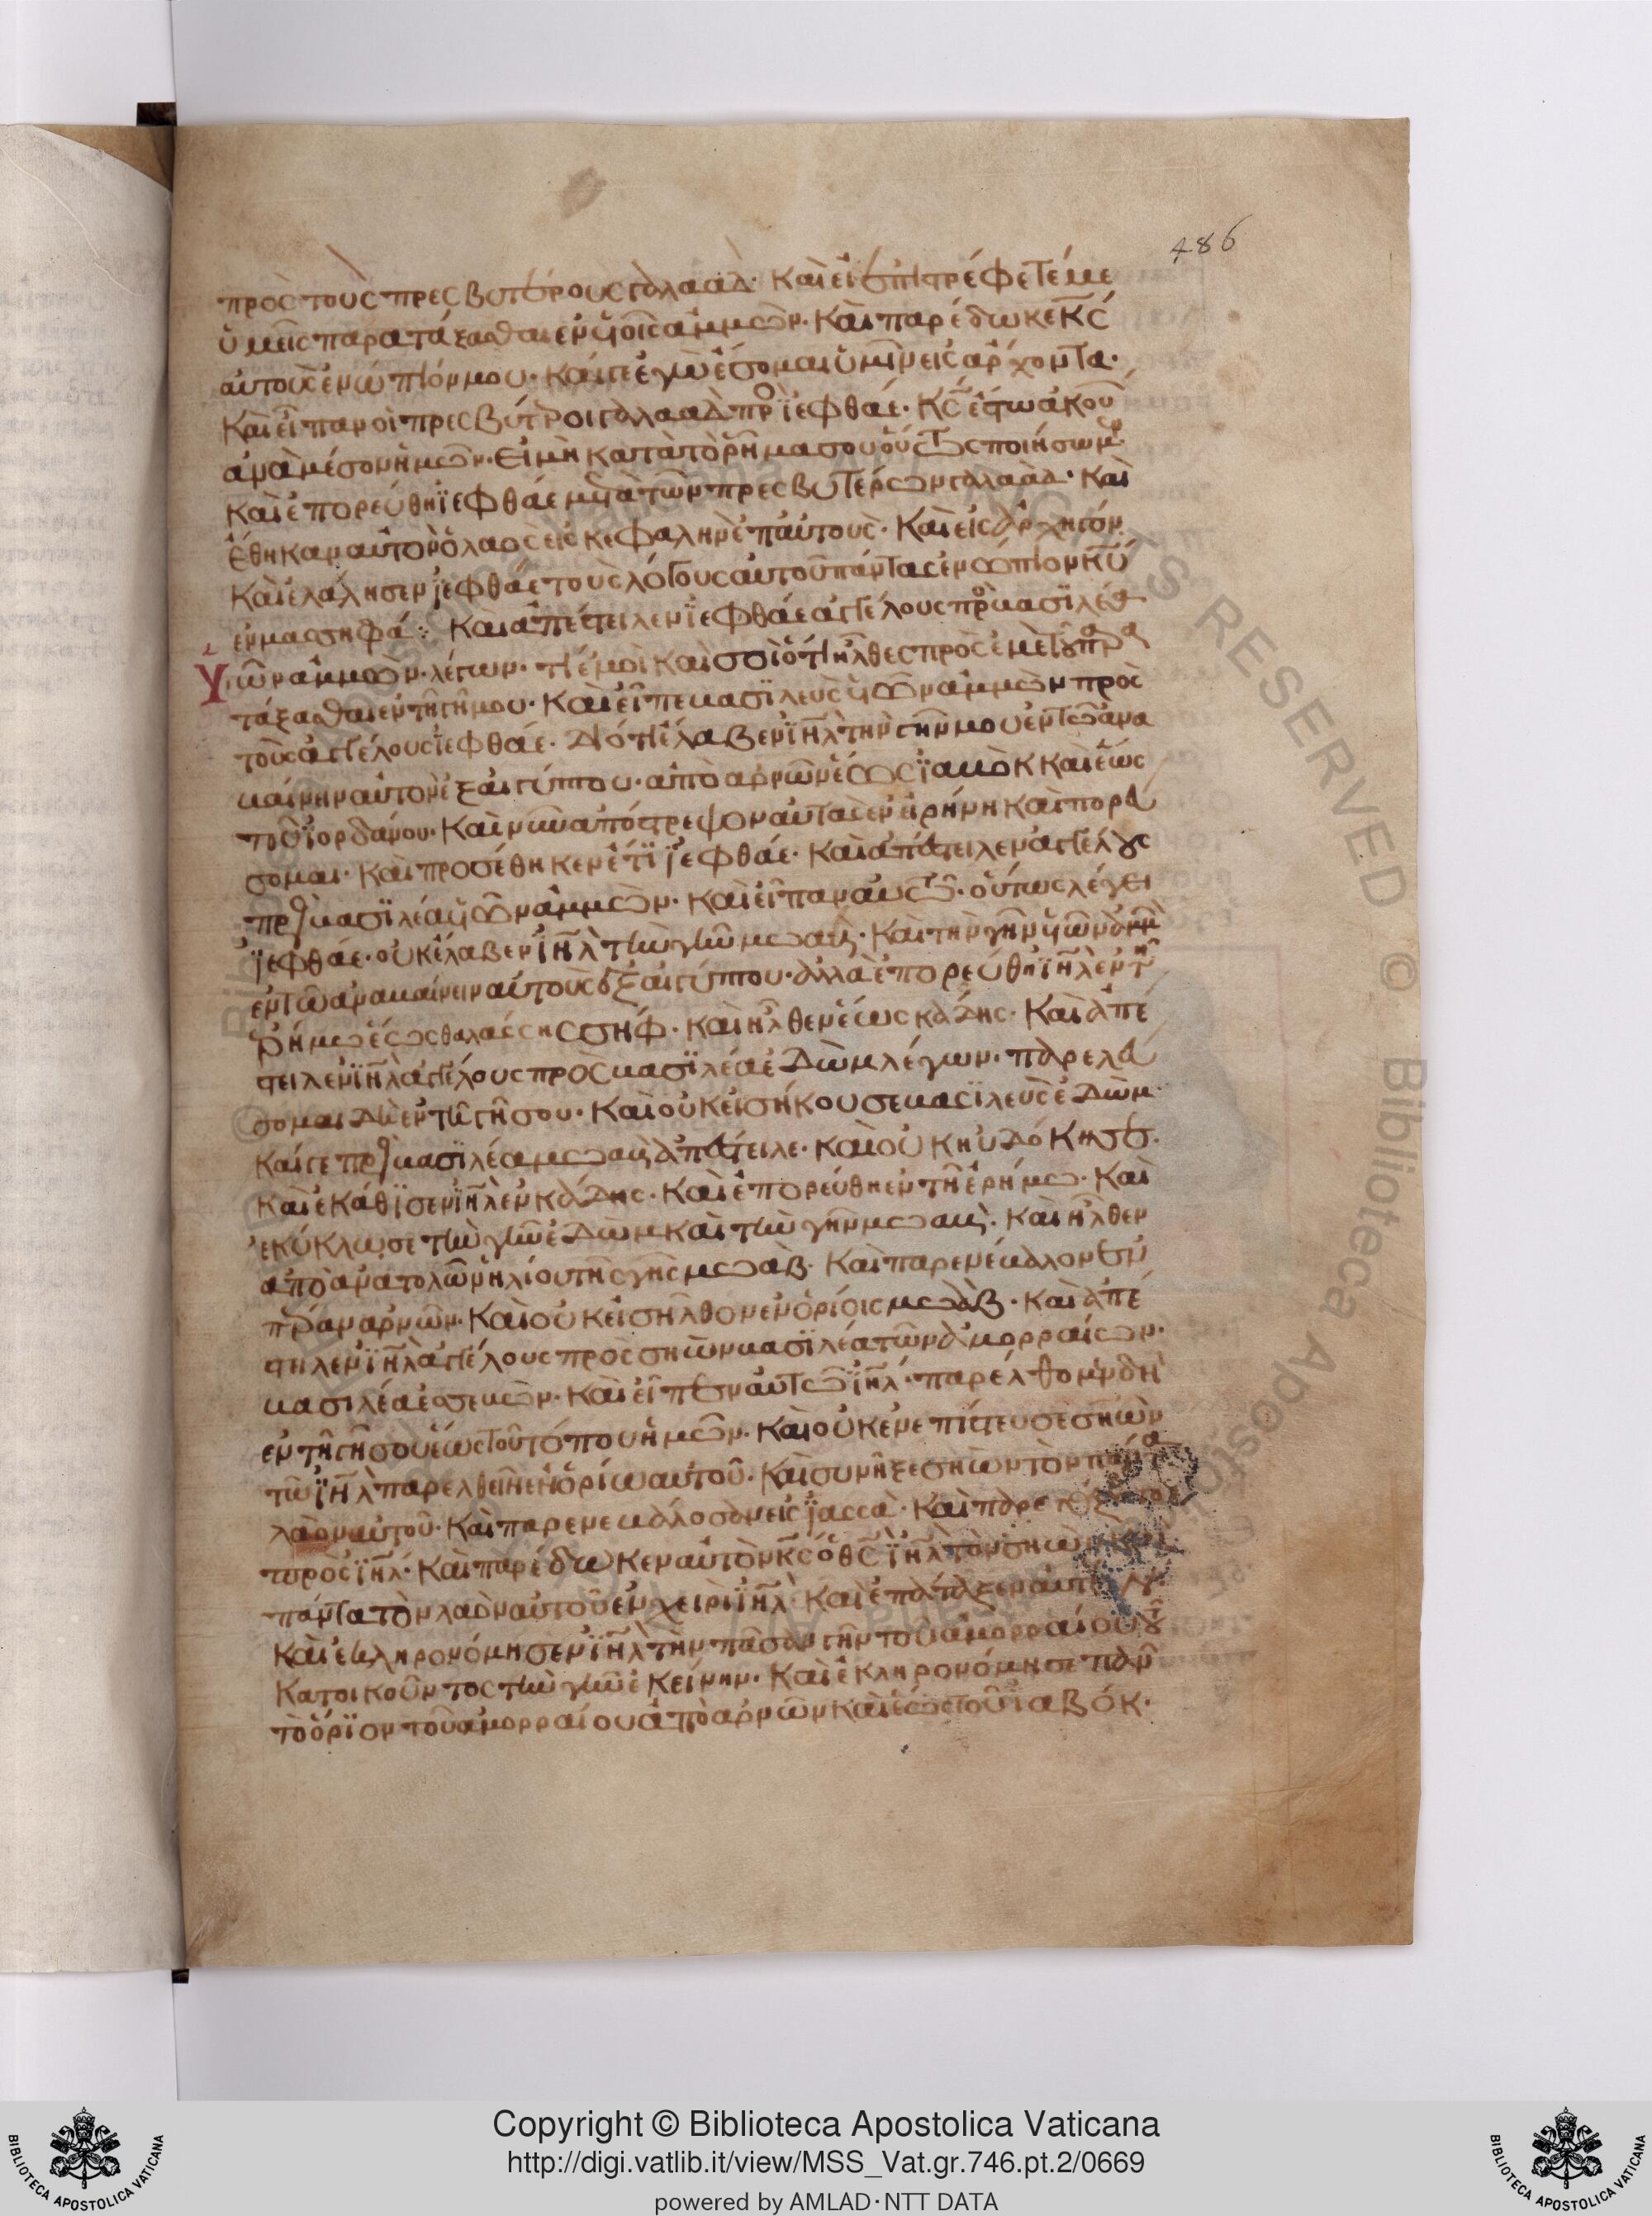 486
πρὸς τοὺς πρεσβυτέρους γαλαάδ· Καὶ εἰ ἐπιστρέφετέ με
ὑμεῖς παρατάξασθαι ἐν υἱοῖς ἀμμών· Καὶ παρέδωκε κ̅ς̅
αὐτοὺς ἐνώπιόν μου· καί γε ἐγὼ ἔσομαι ὑμῖν εἰς ἄρχοντα·
Καὶ εἶπαν οἱ πρεσβύτεροι γαλαὰδ πρὸ ϊεφθάε· κ̅ς̅ ἔστω ἀκού
ἀναμέσον ἡμῶν· Εἰ μὴ κατὰ τὸ ῥῆμα σου οὕτως ποιήσωμεν
Καὶ ἐπορεύθη ϊεφθάε μετὰ τῶν πρεσβυτέρων γαλαάδ· Καὶ
ἔθηκαν αὐτὸν ὁ λαὸς εἰς κεφαλὴν ἐπ' αὐτοὺς· Καὶ εἰς ἀρχηγόν
Καὶ ἐλάλησεν ϊεφθάε τοὺς λόγους αὐτοῦ πάντας ἐνώπιον κ̅υ̅
ἐν μασσηφά· Καὶ ἀπέστειλεν ϊεφθάε ἀγγέλους πρὸ βασιλέα
Υἱῶν ἀμμών· λέγων· τί ἐμοὶ καὶ σοὶ ὅτι ἦλθες πρὸς ἐμὲ τοῦ παρα
τάξασθαι ἐν τῆ γῆ μου· Καὶ εἶπε βασιλεὺς υἱῶν ἀμμὼν πρὸς
τοὺς ἀγγέλους ϊεφθάε· διότι ἔλαβεν ϊη̅λ̅ τὴν γῆν μου ἐν τῶ ἀνα
βαίνην αὐτὸν ἐξ αἰγύπτου· ἀπὸ ἀρνῶν ἕως ϊαβὸκ καὶ ἕως
τοῦ ϊορδάνου· Καὶ νῦν ἀπόστρεψον αὐτὰς ἐν εἰρήνη καὶ πορεύ
σομαι· Καὶ προσέθηκεν ἔτϊ ϊεφθάε· Καὶ ἀπέστειλεν ἀγγέλους
πρὸς βασιλέα υἱῶν ἀμμών· Καὶ εἶπαν αὐτῶ· οὕτως λέγει
ϊεφθάε· οὐκ ἔλαβεν ϊη̅λ̅ τὴν γῆν μωάβ· Καὶ τὴν γῆν υἱῶν ἀμμ
ἐν τῶ ἀναβαίνειν αὐτοὺς ἐξ αἰγύπτου· ἀλλὰ ἐπορεύθη ϊη̅λ̅ ἐν τῆ
ἐρήμω ἕως θαλάσσης σήφ· Καὶ ἦλθεν ἕως κάδης· Καὶ ἀπέ
στειλεν ϊη̅λ̅ ἀγγέλους πρὸς βασιλέα ἐδὼμ λέγων· παρελεύ
σομαι δὴ ἐν τῆ γῆ σου· Καὶ οὐκ εἰσήκουσε βασιλεὺς ἐδώμ·
Καί γε πρὸς βασιλέα μωὰβ ἀπέστειλε· καὶ οὐκ ηὐδόκησε·
Καὶ ἐκάθϊσεν ϊη̅λ̅ ἐν κάδης· Καὶ ἐπορεύθη ἐν τῆ ἐρήμω· Καὶ
ἐκύκλωσε τὴν γῆν ἐδὼμ καὶ τὴν γῆν μωάβ· Καὶ ἦλθεν
ἀπὸ ἀνατολῶν ἡλίου τῆς γῆς μωάβ· Καὶ παρενέβαλον ἐν
πέραν ἀρνῶν· Καὶ οὐκ εἰσῆλθον ἐν ὁρίοις μωάβ· Καὶ ἀπέ
στηλεν ϊη̅λ̅ ἀγγέλους πρὸς σηὼν βασιλέα τῶν ἀμορραίων·
βασιλέα ἐσεβών· Καὶ εἶπεν αὐτῶ ϊη̅λ̅· παρέλθομεν δὴ
ἐν τῆ γῆ σου ἕως τοῦ τόπου ἡμῶν· Καὶ οὐκ ἐνεπίστευσε σηὼν
τῶ ϊη̅λ̅ παρελθεῖν ἐν ὁρίω αὐτοῦ· Καὶ συνῆξε σηὼν τὸν πάντα
λαὸν αὐτοῦ· Καὶ παρενεβάλοσαν εἰς ϊασσά· Καὶ παρετάξατο
πρὸς ϊη̅λ̅· Καὶ παρέδωκεν αὐτὸν κ̅ς̅ ὁ θ̅ς̅ ϊη̅λ̅ τὸν σηὼν καὶ
πάντα τὸν λαὸν αὐτοῦ ἐν χειρὶ ϊη̅λ̅· Καὶ ἐπάταξεν αὐτόν·
Καὶ ἐκληρονόμησεν ϊη̅λ̅ τὴν πᾶσαν γῆν τοῦ ἀμορραίου τοῦ
κατοικοῦντος τὴν γῆν ἐκείνην· Καὶ ἐκληρονόμησε πᾶν
τὸ ὅρϊον τοῦ ἀμορραίου ἀπὸ ἀρνῶν καὶ ἕως τοῦ ϊαβόκ·
Copyright © Biblioteca Apostolica Vaticana
http://digi.vatlib.it/view/MSS_Vat.gr.746.pt.2/0669
powered by AMLAD·NTT DATA